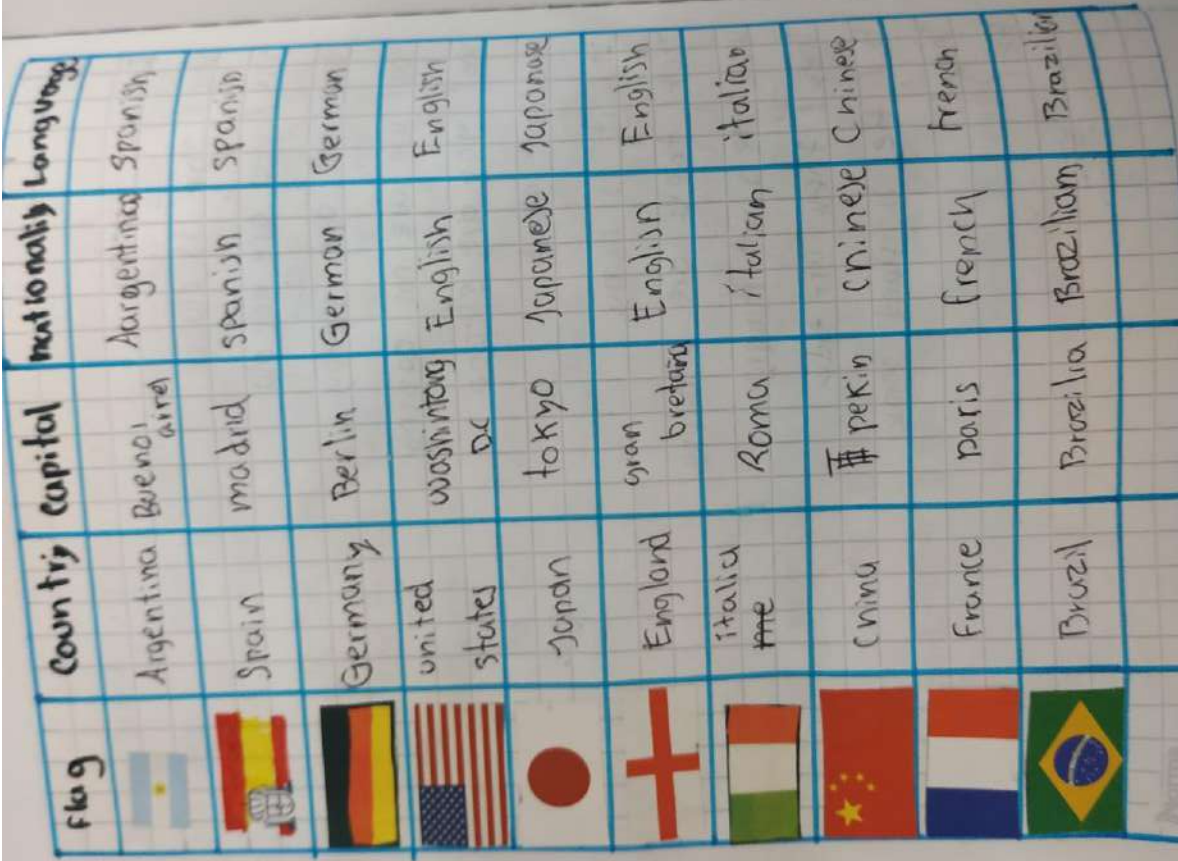 Flag Country Capital nationality Language
Argentina Buenos aires Aargentinaa Spanish
Spain madrid spanish spanish
Germany Berlin German German
united states washintong DC English English
Japan tokyo Japanese Japanese
England gran bretaña English English
italia Roma italian italian
China pekin chinese Chinese
France paris french french
Brazil Brazilia Braziliam Brazilian